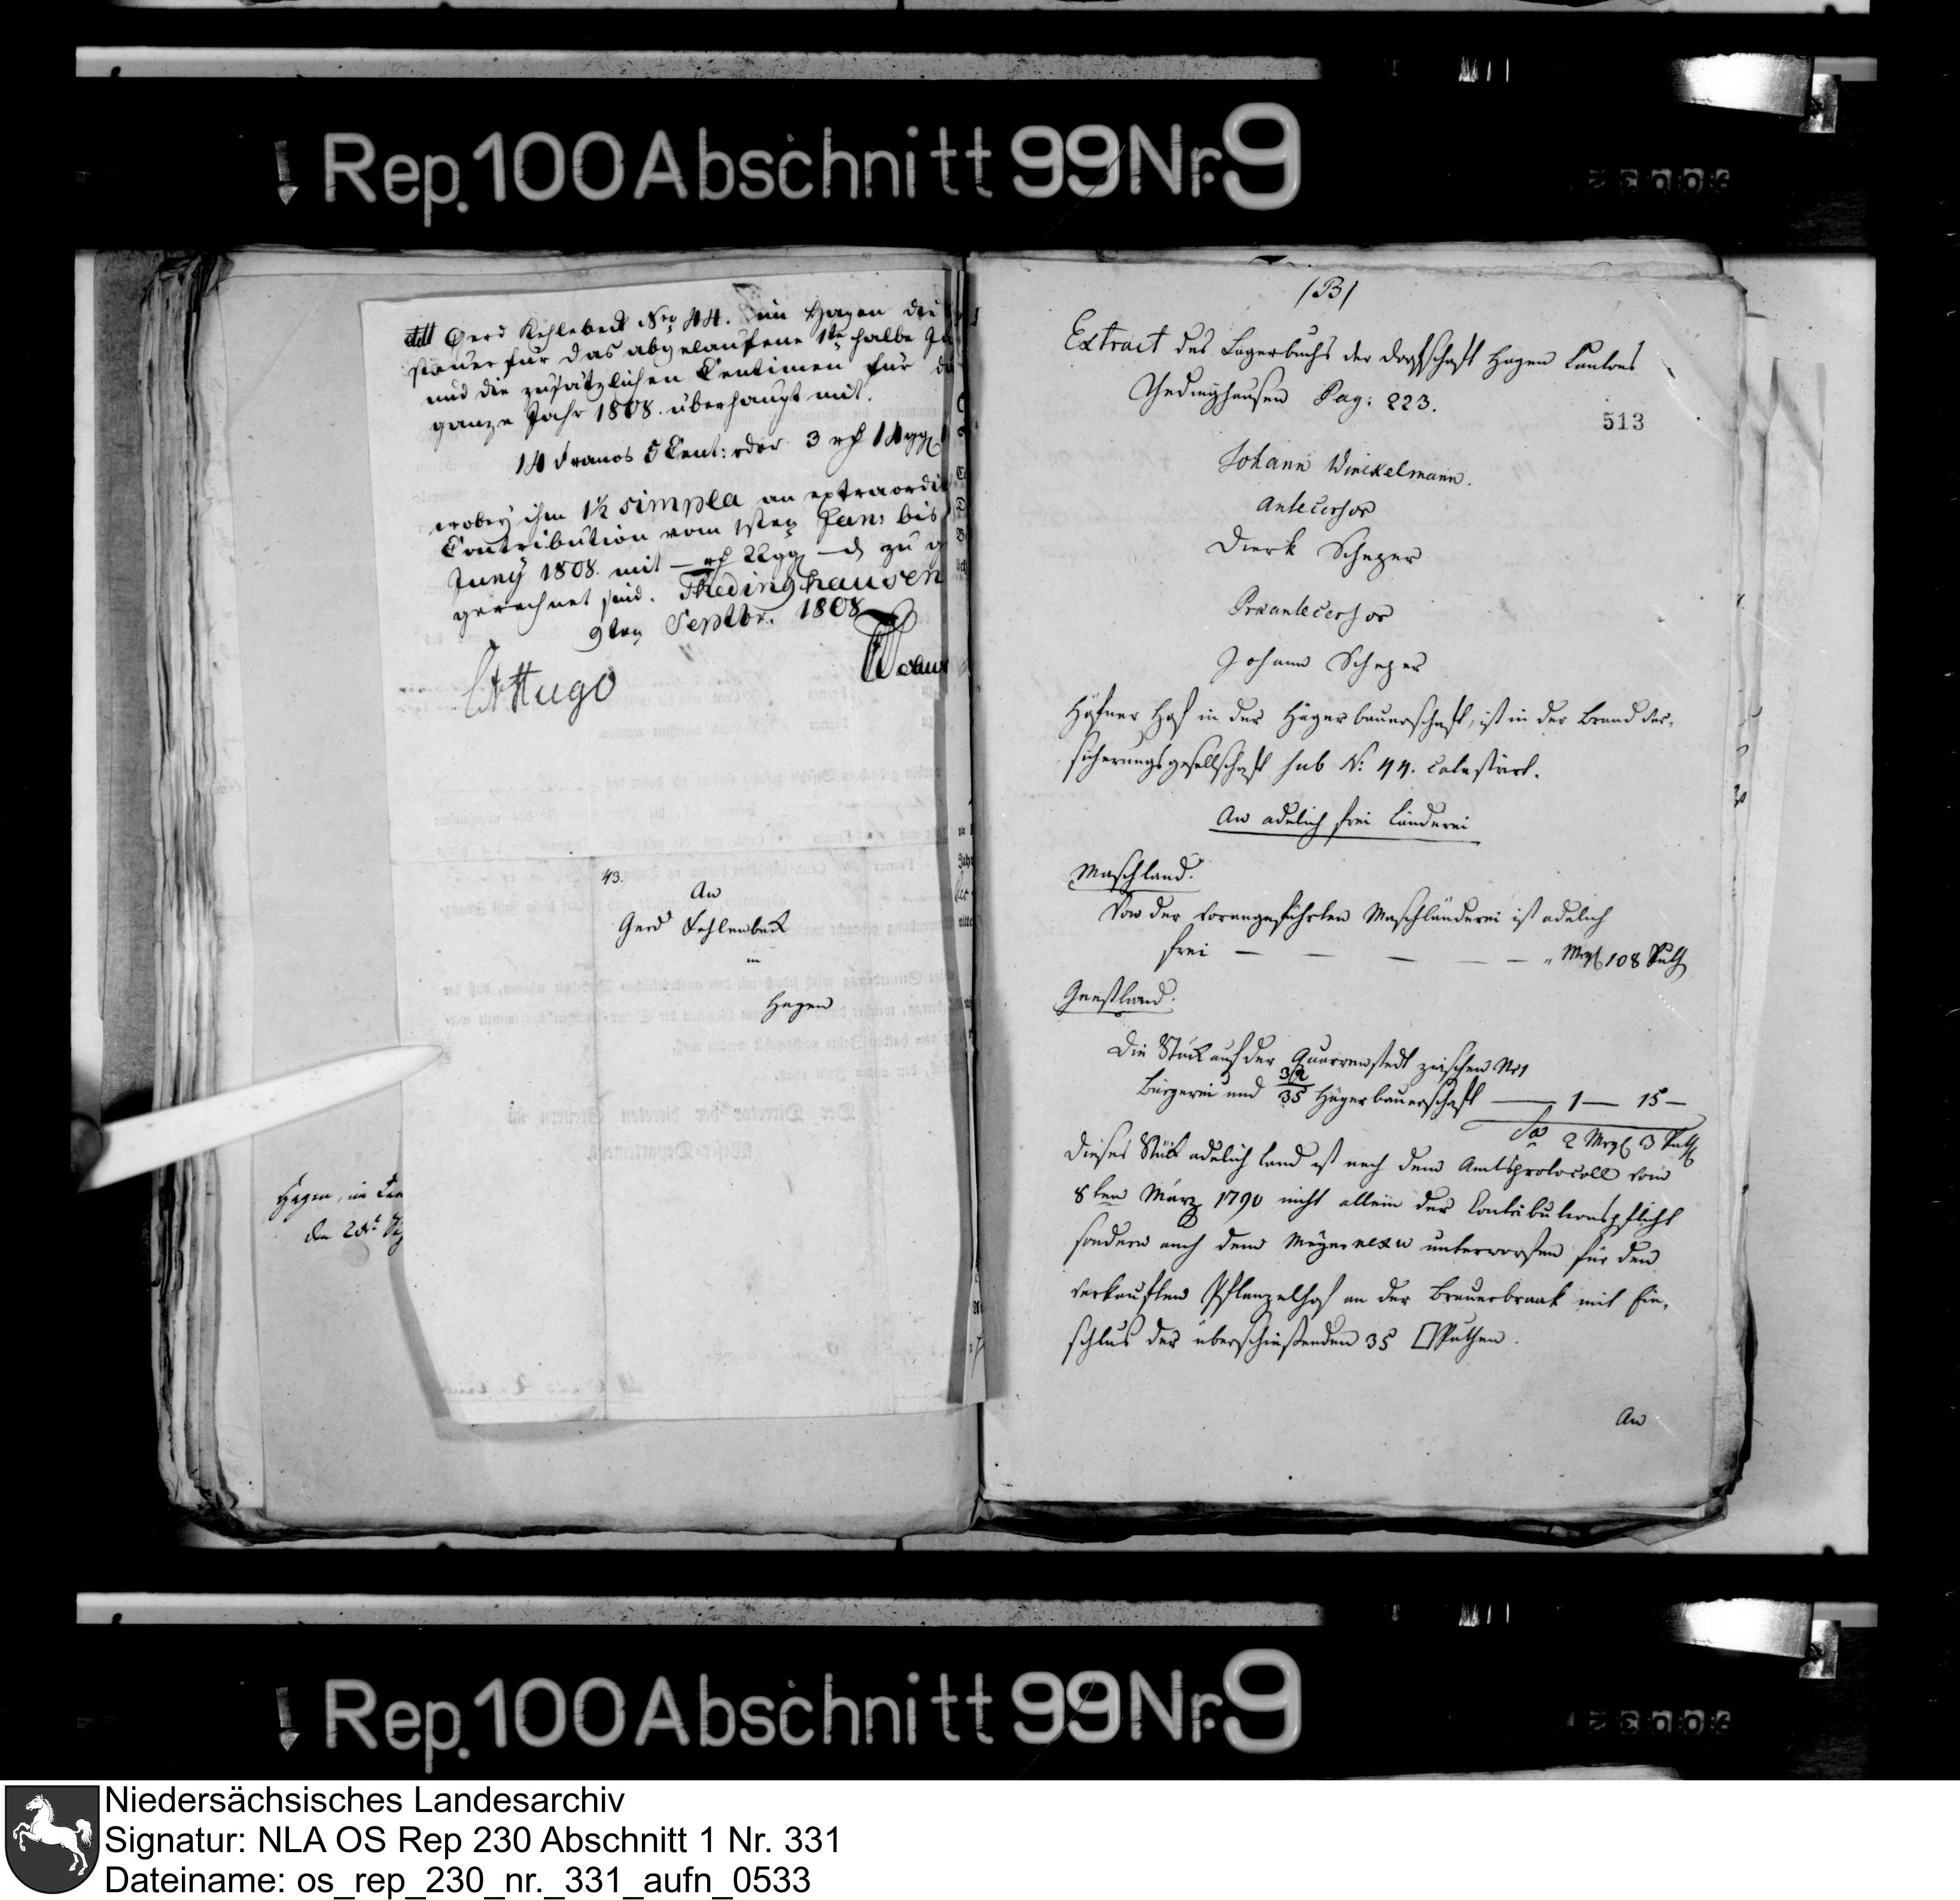 Rep. 100 Abschnitt 99 Nr. 9
Gerd Kehlebeck Nro 44. in Hagen die
steuer für das abgelaufene 1te halbe Ja
und die zusätzlichen Centimen für d
ganze Jahr 1808. überhaupt mit
14 Francs 5 Cent: oder 3 rh 14 ggl
wobey ihm 1½ simpla an extraordi
Contribution vom 1sten Jan: bis
Juny 1808. mit — rh 22 gg — d zu g
gerechnet sind. Thedinghausen
9ten Septbr. 1808
Hugo
43.
An
Gerd Fehlenbeck
in
Hagen
Hagen, im Can
den 2
(B)
Extract des Lagerbuchs der Dorfschaft Hagen Cantons
Thedinghausen Pag: 223.
513
Johann Winckelmann.
Antecessor
Dierk Scheper
Praeantecessor
Johann Scheper
Höfner Hof in der Hägerbauerschaft, ist in der Brandver-
sicherungsgesellschaft sub N: 44. catastrirt.
An adelich frei Länderei
Maschland.
Von der vorangeführten Maschländerei ist adelich
frei — — — — — „ Mrg 108 Ruth
Geestland.
Die Stück auf der Querrenstedt zwischen Nr 1
Bürgerei und 32/35 Hägerbauerschaft — 1 — 15 —
Sa 2 Mrg 3 Ruth
Dieses Stück adelich Land ist nach dem Amtsprotocoll vom
8ten März 1790 nicht allein der Contributionspflicht
sondern auch dem Meyernexu unterworfen für den
verkauften Pflanzelhof an der Brauerbraak mit Ein-
schlus der überschießenden 35 □Ruthen.
An
Rep. 100 Abschnitt 99 Nr. 9
Niedersächsisches Landesarchiv
Signatur: NLA OS Rep 230 Abschnitt 1 Nr. 331
Dateiname: os_rep_230_nr._331_aufn_0533